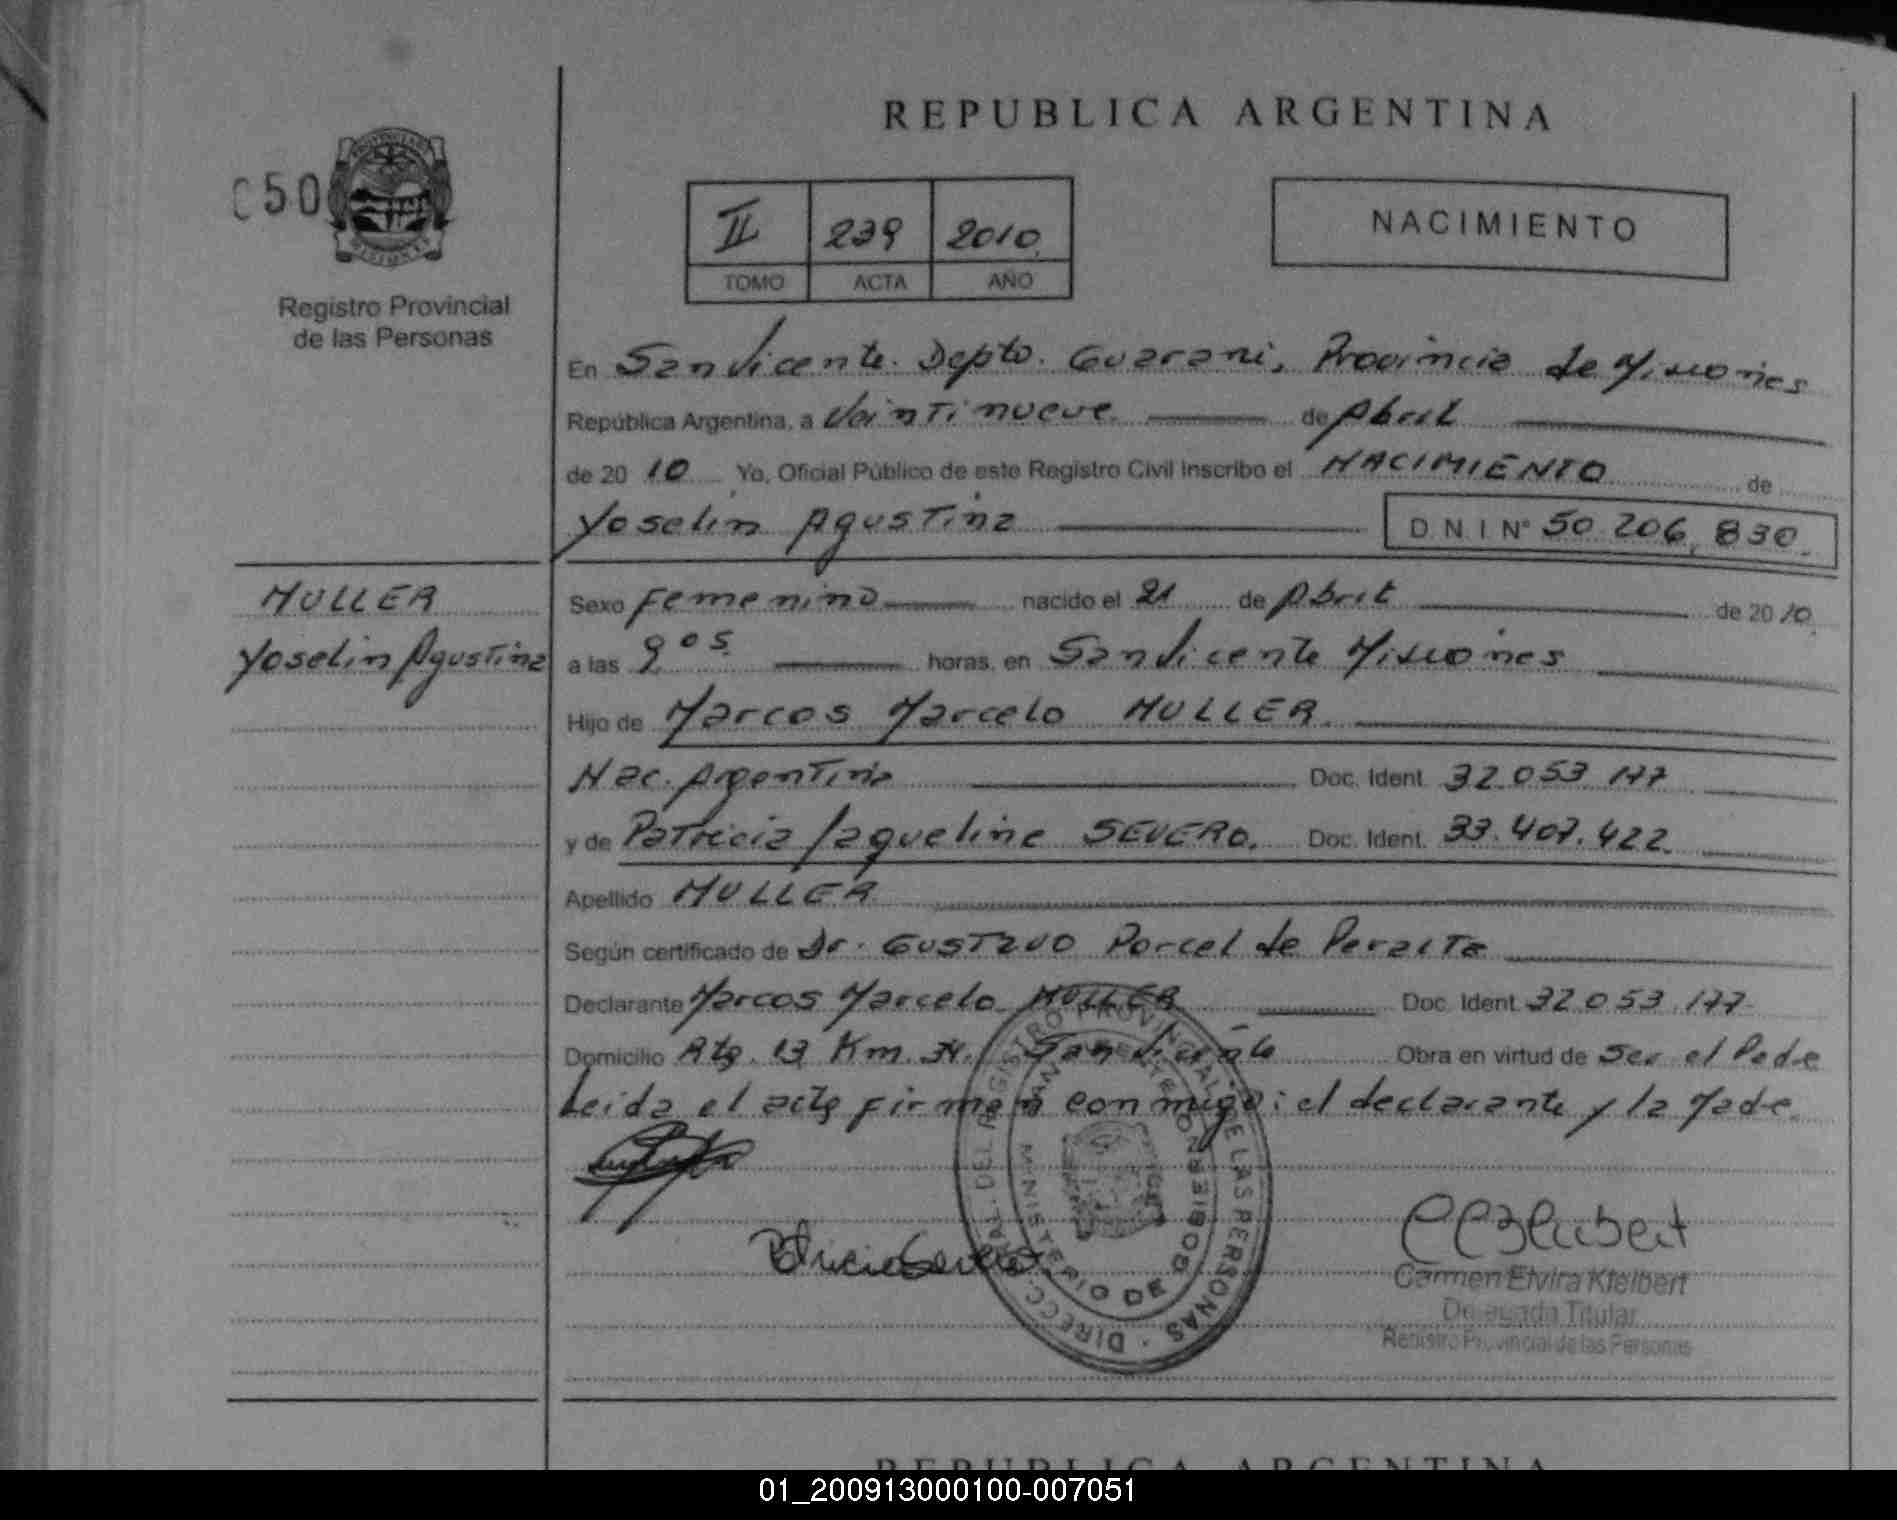 REPUBLICA ARGENTINA
C50
II 239 2010
TOMO ACTA AÑO
NACIMIENTO
Registro Provincial
de las Personas
En San Vicente. Depto. Guarani, Provincia de Misiones
República Argentina, a Veintinueve de Abril
de 20 10 Yo, Oficial Público de este Registro Civil inscribo el NACIMIENTO de
Yoselin Agustina D.N.I Nº 50.206.830.
MULLER
Yoselin Agustina
Sexo Femenino nacido el 21 de Abril de 20 10
a las 9 05 horas, en San Vicente Misiones
Hijo de Marcos Marcelo MULLER
Nac. Argentina Doc. Ident. 32.053.177
y de Patricia Jaqueline SEVERO. Doc. Ident. 33.407.422
Apellido MULLER
Según certificado de Dr. Gustavo Porcel de Peralta
Declarante Marcos Marcelo MULLER Doc. Ident. 32.053.177
Domicilio Rta. 13 Km. 34. San Vicente Obra en virtud de Ser el Padre
Leida el acta firman conmigo: el declarante y la Madre.
DIRECC. GRAL. DEL REGISTRO PROVINCIAL DE LAS PERSONAS
MINISTERIO DE GOBIERNO
Carmen Elvira Kleibert
Delegada Titular
Registro Provincial de las Personas
REPUBLICA ARGENTINA
01_200913000100-007051